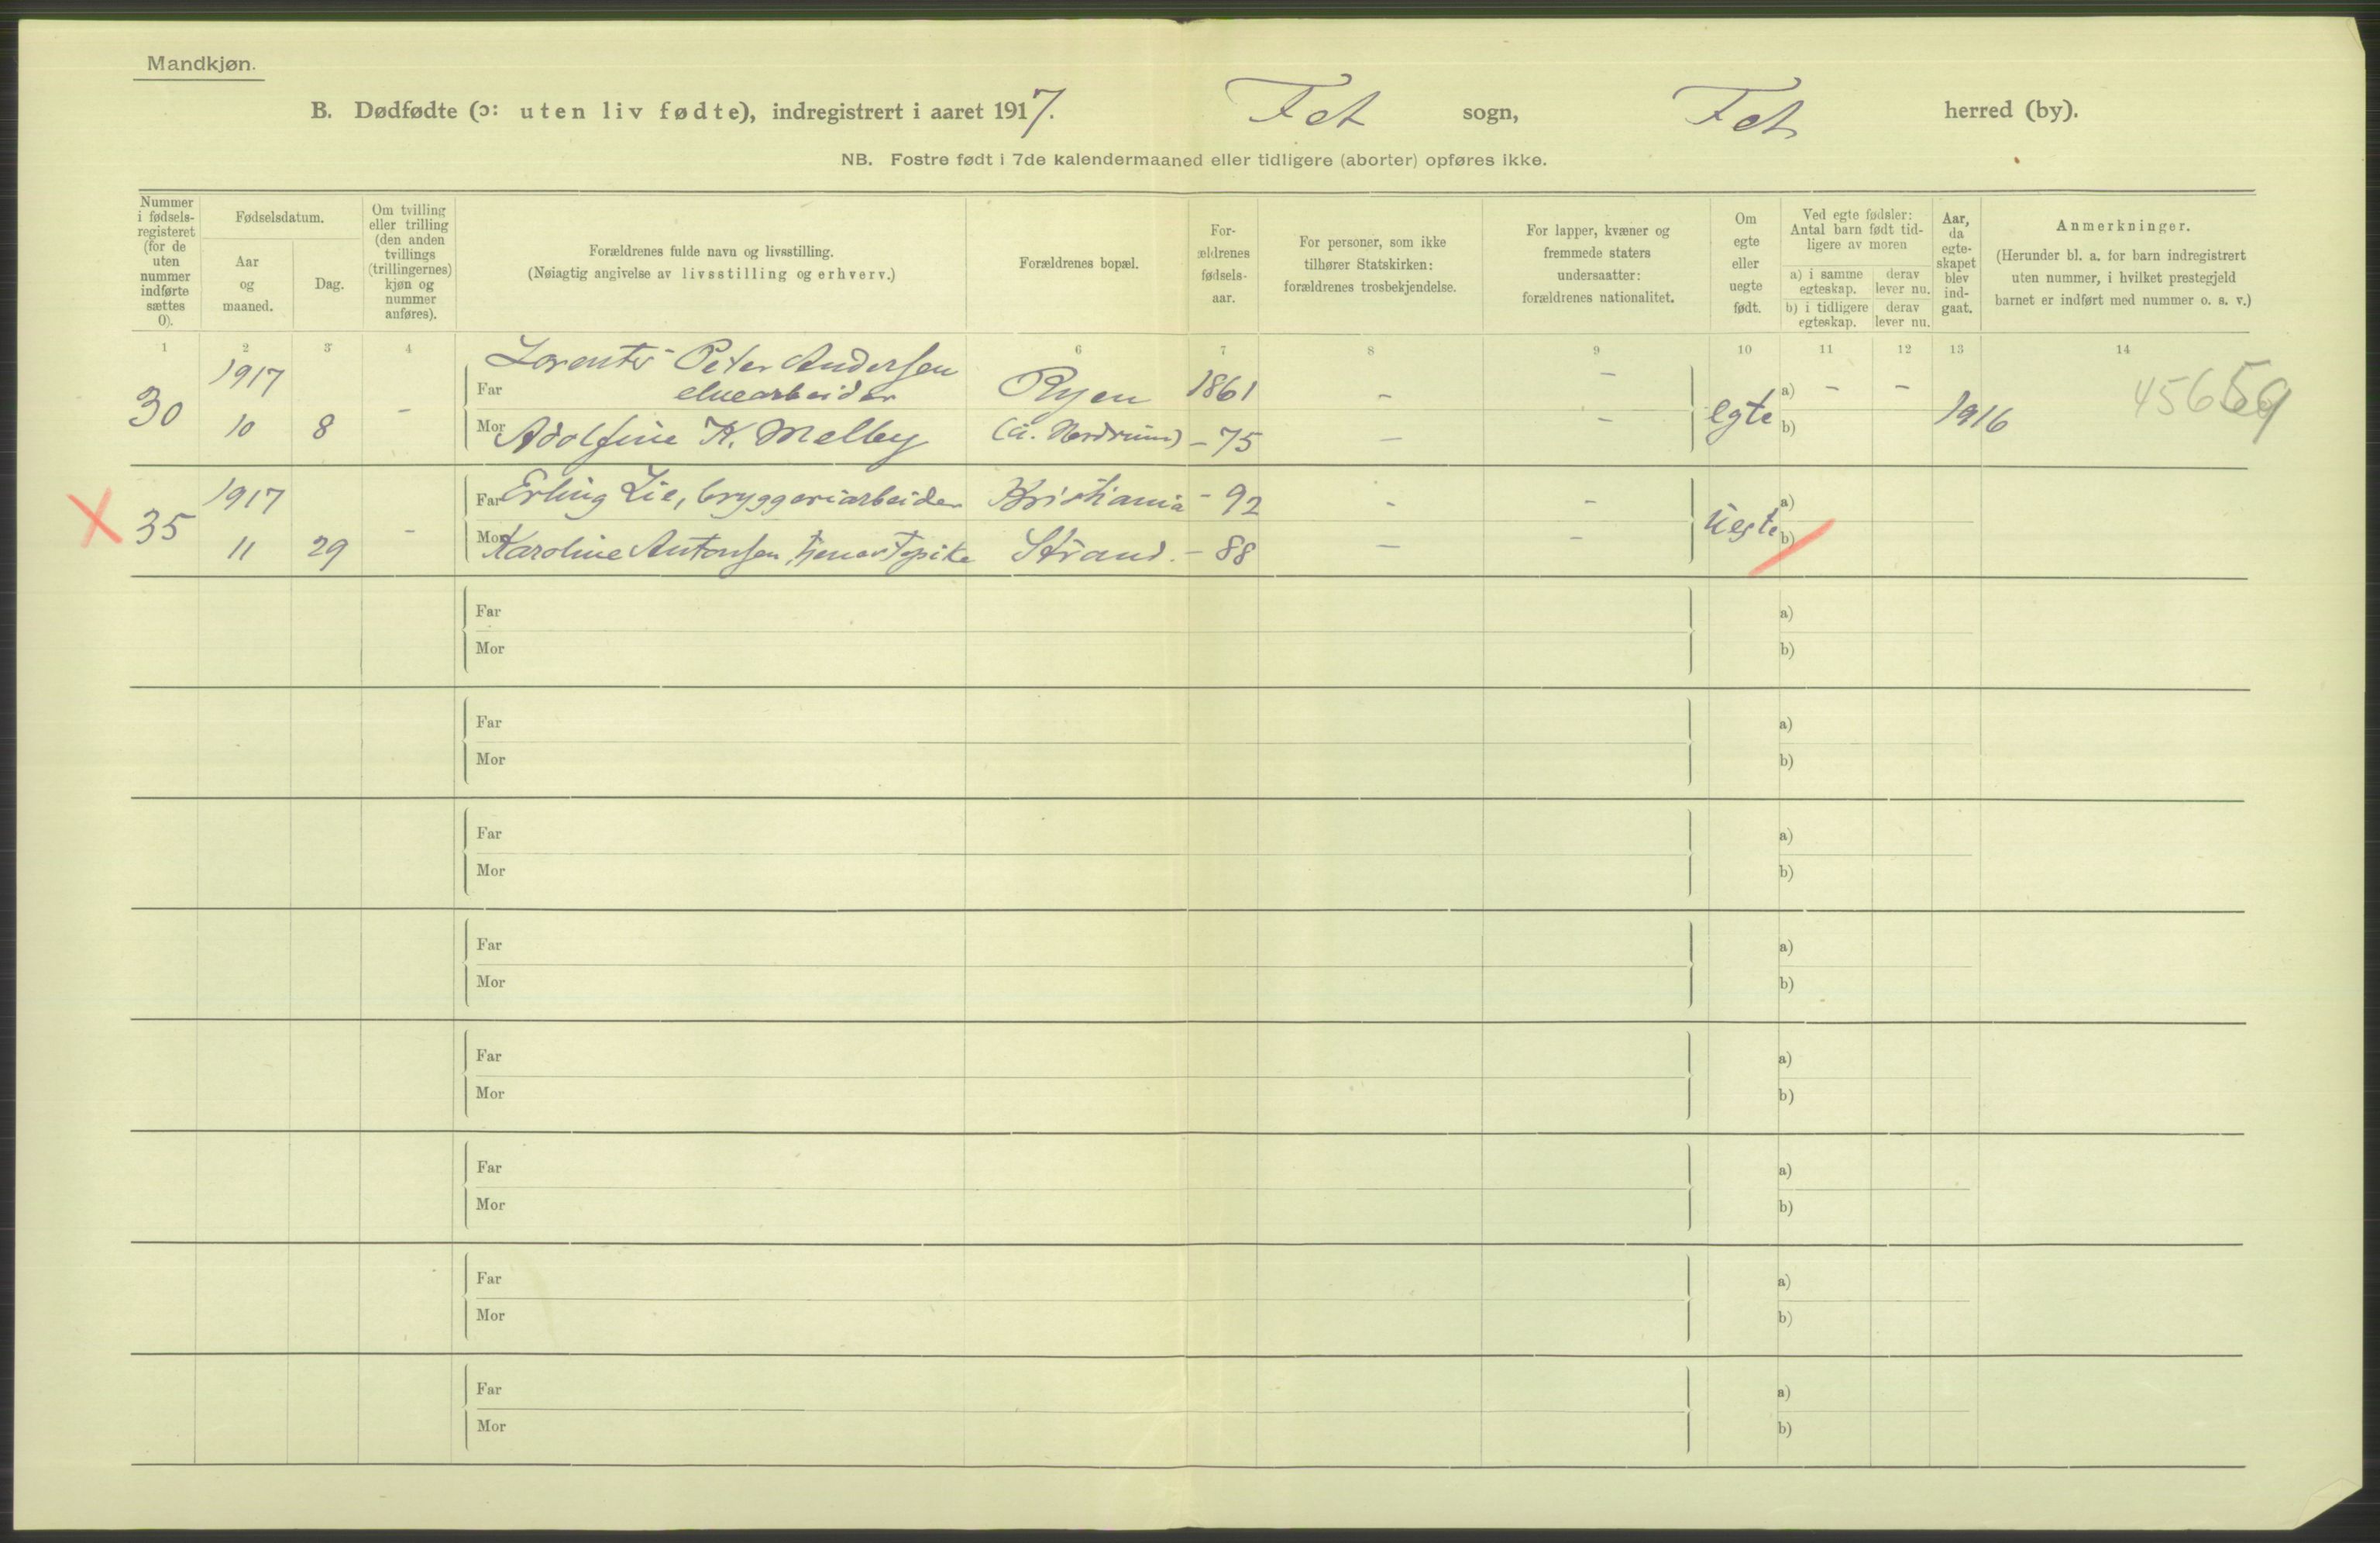 Mandkjøn.
B. Dødfødte (ɔ: uten liv fødte), indregistrert i aaret 1917. Fet sogn, Fet herred (by).
NB. Fostre født i 7de kalendermaaned eller tidligere (aborter) opføres ikke.
Nummer i fødsels-registeret (for de uten nummer indførte sættes 0).
Fødselsdatum.
Aar og maaned.
Dag.
Om tvilling eller trilling (den anden tvillings (trillingernes) kjøn og nummer anføres).
Forældrenes fulde navn og livsstilling.
(Nøiagtig angivelse av livsstilling og erhverv.)
Forældrenes bopæl.
For-ældrenes fødsels-aar.
For personer, som ikke tilhører Statskirken: forældrenes trosbekjendelse.
For lapper, kvæner og fremmede staters undersaatter: forældrenes nationalitet.
Om egte eller uegte født.
Ved egte fødsler: Antal barn født tid-ligere av moren
a) i samme egteskap. derav lever nu.
b) i tidligere egteskap. derav lever nu.
Aar, da egte-skapet blev ind-gaat.
Anmerkninger.
(Herunder bl. a. for barn indregistrert uten nummer, i hvilket prestegjeld barnet er indført med nummer o. s. v.)
1 2 3 4 6 7 8 9 10 11 12 13 14
30 1917 10 8 -
Lorents Peter Andersen
Far elvearbeider Ryen 1861 - - egte a) - - 1916 45659
Mor Adolfine K. Melby (a. Nordrum) - 75 - - b)
X 35 1917 11 29 -
Far Erling Lie, bryggeriarbeider Kristiania - 92 - - Uegte a)
Mor Karoline Antonsen, tjenestepike Strand. - 88 - - b)
Far a)
Mor b)
Far a)
Mor b)
Far a)
Mor b)
Far a)
Mor b)
Far a)
Mor b)
Far a)
Mor b)
Far a)
Mor b)
Far a)
Mor b)